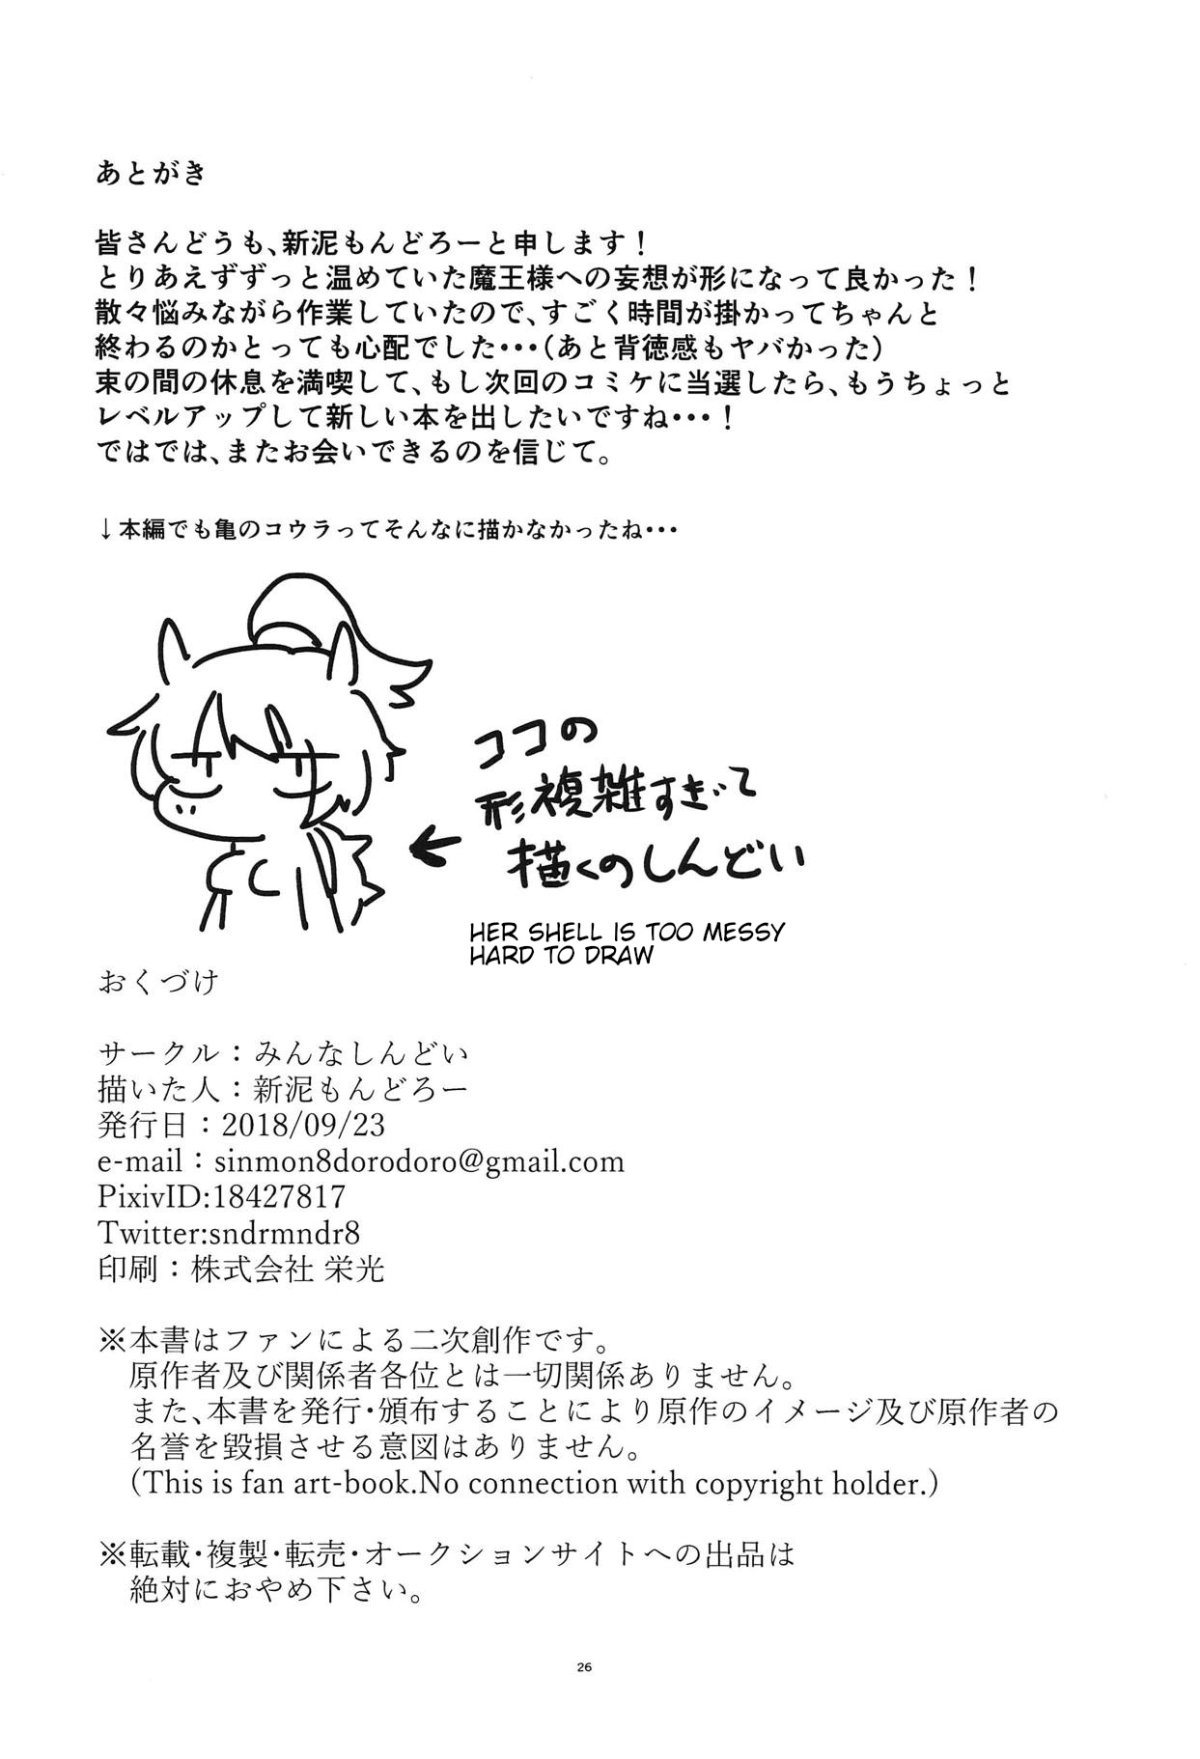 あとがき
皆さんどうも、新泥もんどろーと申します！
とりあえずずっと温めていた魔王様への妄想が形になって良かった！
散々悩みながら作業していたので、すごく時間が掛かってちゃんと
終わるのかとっても心配でした・・・（あと背徳感もヤバかった）
束の間の休息を満喫して、もし次回のコミケに当選したら、もうちょっと
レベルアップして新しい本を出したいですね・・・！
ではでは、またお会いできるのを信じて。
↓本編でも亀のコウラってそんなに描かなかったね・・・
ココの
形複雑すぎて
描くのしんどい
HER SHELL IS TOO MESSY
HARD TO DRAW
おくづけ
サークル：みんなしんどい
描いた人：新泥もんどろー
発行日：2018/09/23
e-mail：sinmon8dorodoro@gmail.com
PixivID:18427817
Twitter:sndrmndr8
印刷：株式会社 栄光
※本書はファンによる二次創作です。
原作者及び関係者各位とは一切関係ありません。
また、本書を発行・頒布することにより原作のイメージ及び原作者の
名誉を毀損させる意図はありません。
（This is fan art-book.No connection with copyright holder.）
※転載・複製・転売・オークションサイトへの出品は
絶対におやめ下さい。
26